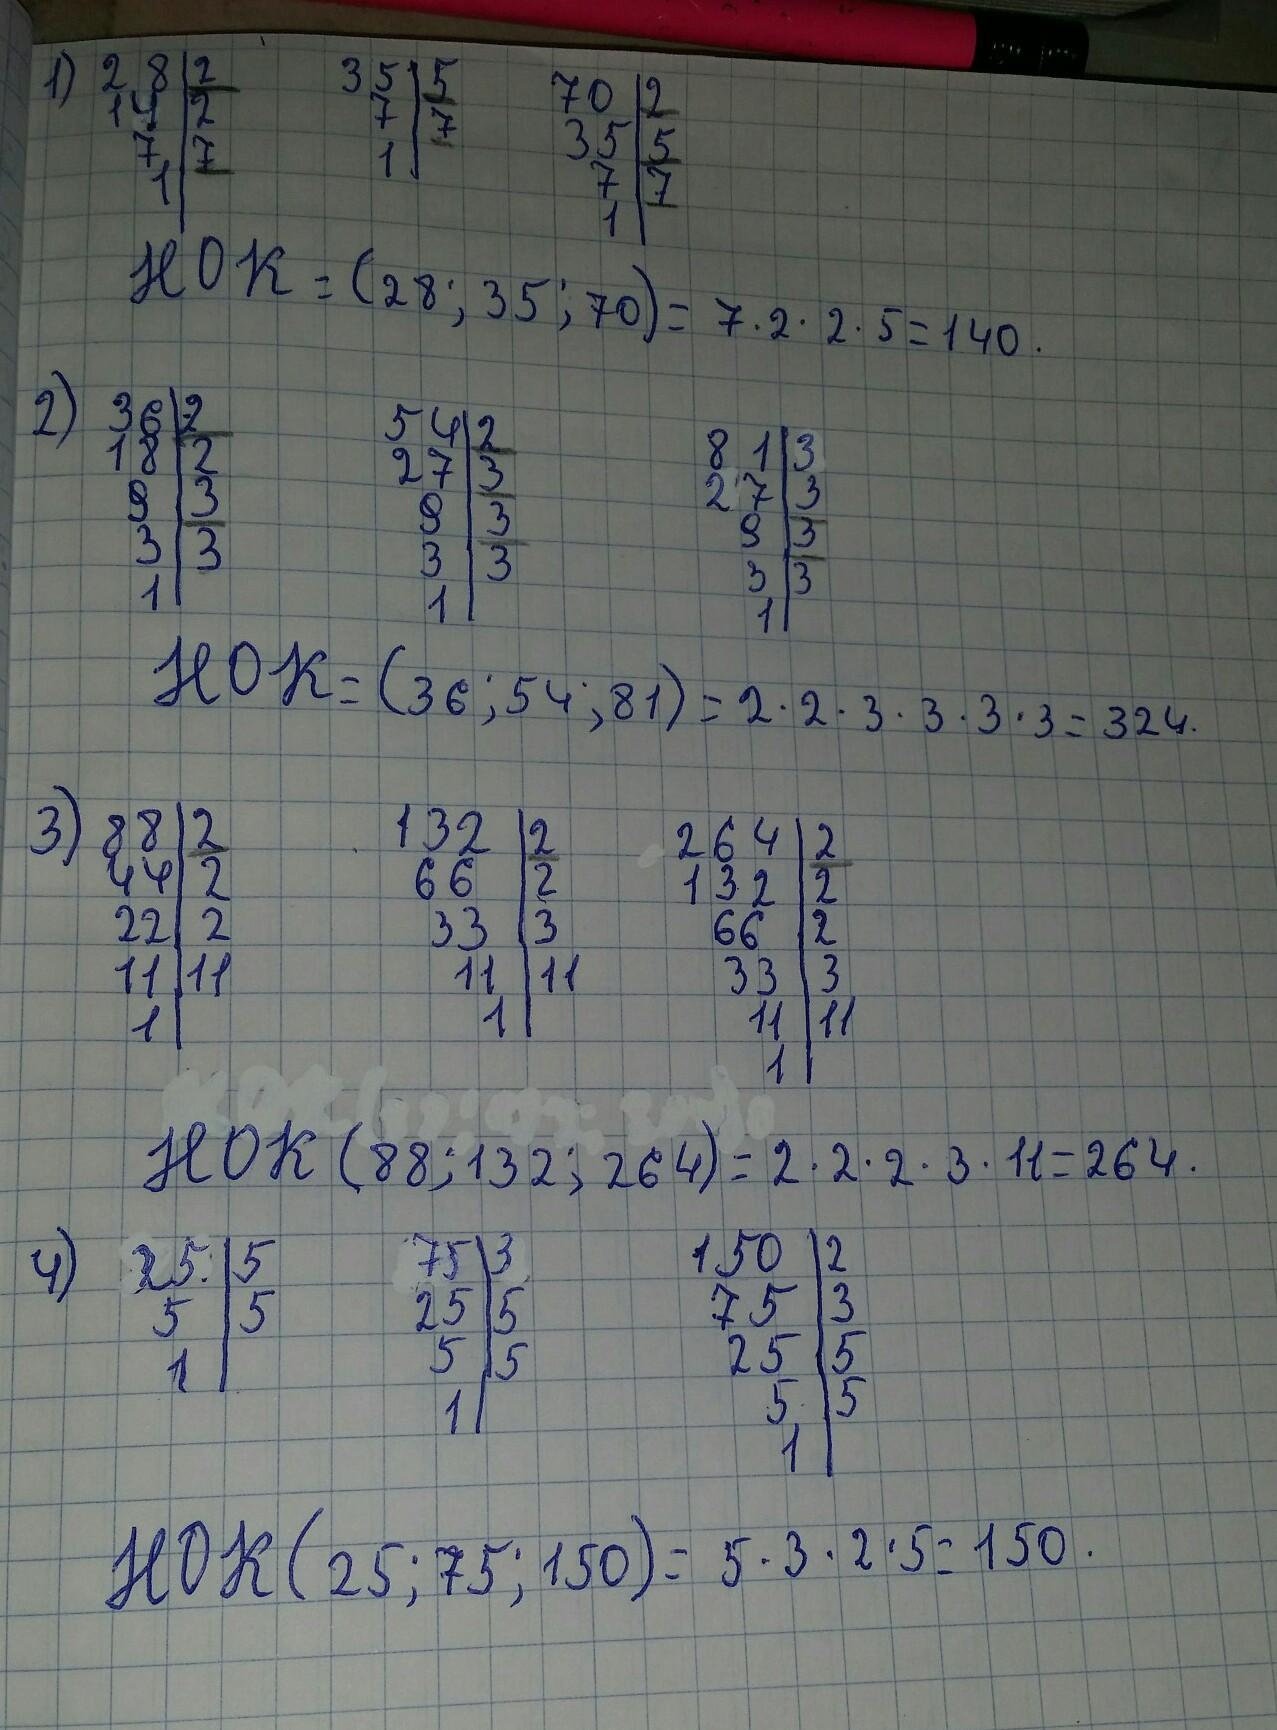 1) 28 | 2    35 | 5    70 | 2
14 | 2    7 | 7    35 | 5
7 | 7    1 |    7 | 7
1 |    1 |
НОК = (28; 35; 70) = 7·2·2·5 = 140.
2) 36 | 2    54 | 2    81 | 3
18 | 2    27 | 3    27 | 3
9 | 3    9 | 3    9 | 3
3 | 3    3 | 3    3 | 3
1 |    1 |    1 |
НОК = (36; 54; 81) = 2·2·3·3·3·3 = 324.
3) 88 | 2    132 | 2    264 | 2
44 | 2    66 | 2    132 | 2
22 | 2    33 | 3    66 | 2
11 | 11    11 | 11    33 | 3
1 |    1 |    11 | 11
1 |
НОК (88; 132; 264) = 2·2·2·3·11 = 264.
4) 25 | 5    75 | 3    150 | 2
5 | 5    25 | 5    75 | 3
1 |    5 | 5    25 | 5
1 |    5 | 5
1 |
НОК (25; 75; 150) = 5·3·2·5 = 150.